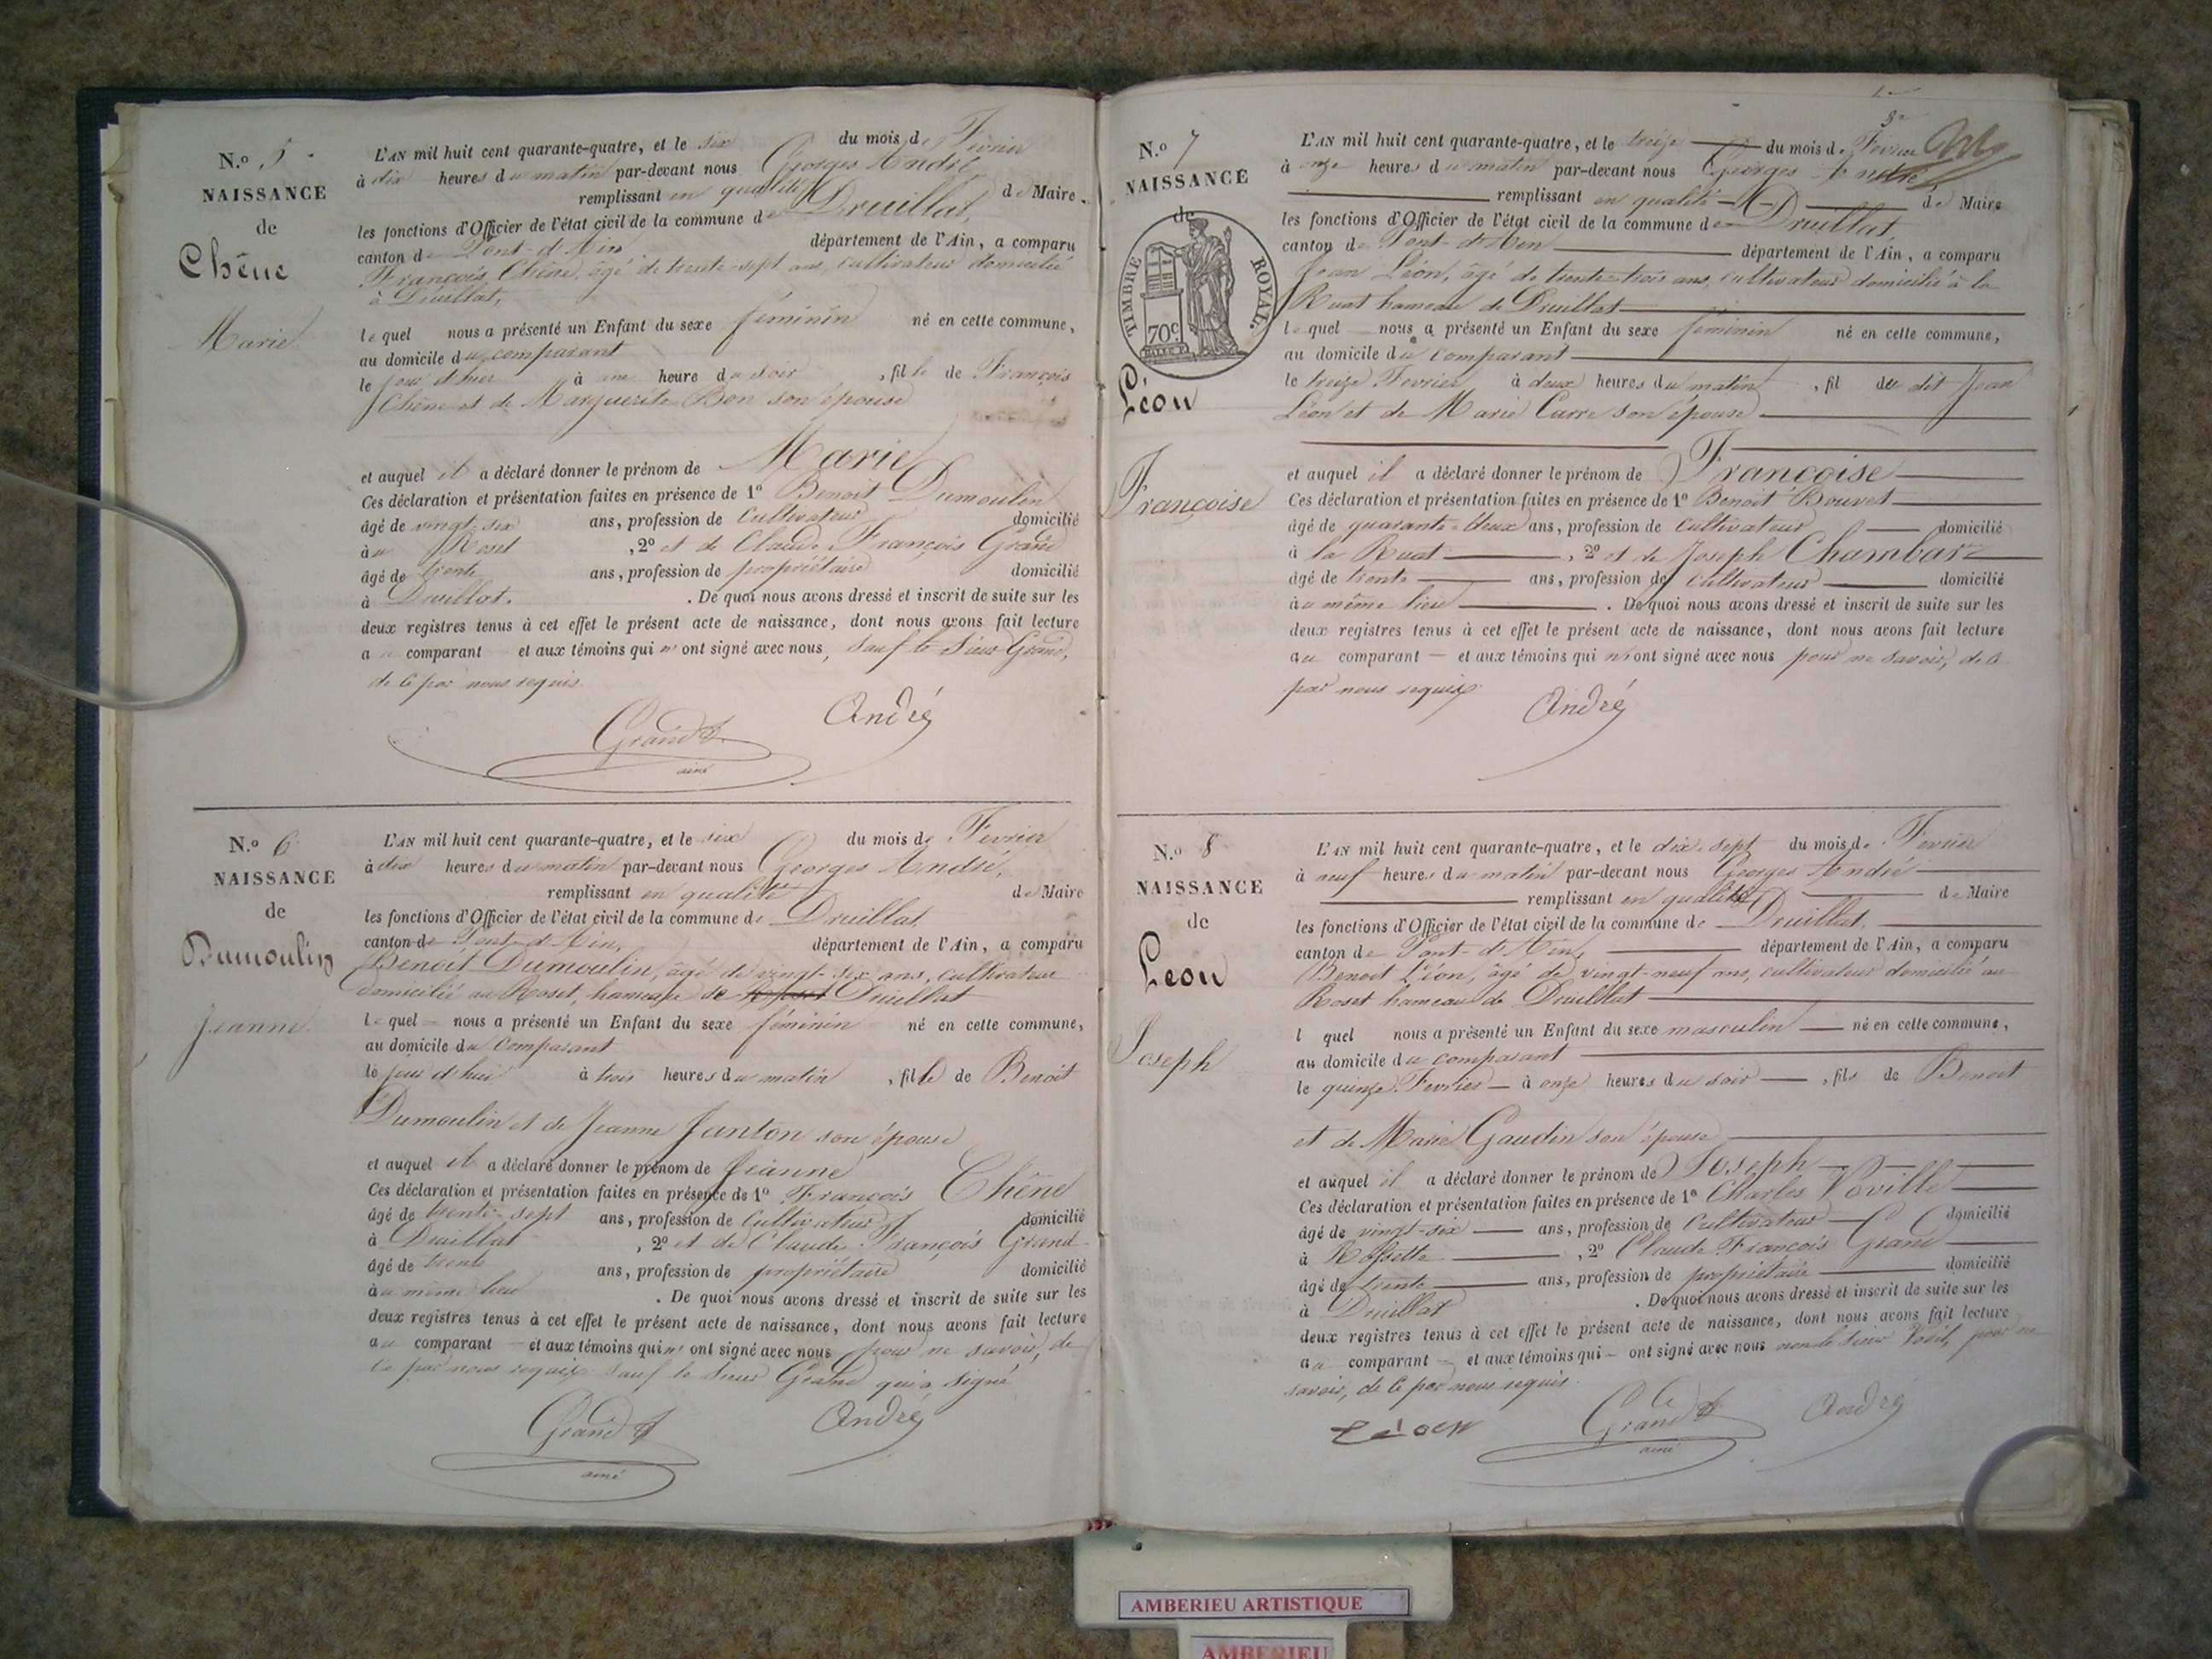 N.o 5
NAISSANCE
de
Chêne
Marie
L'AN mil huit cent quarante-quatre, et le six du mois de Février
à dix heures du matin par-devant nous Georges André,
remplissant en qualité de Maire
les fonctions d'Officier de l'état civil de la commune de Druillat,
canton de Pont-d'Ain département de l'Ain, a comparu
François Chêne, âgé de trente-sept ans, cultivateur domicilié
à Druillat,
lequel nous a présenté un Enfant du sexe féminin né en cette commune,
au domicile du comparant
le jour d'hier à une heure du soir, fille de François
Chêne et de Marguerite Bon son épouse
et auquel il a déclaré donner le prénom de Marie
Ces déclaration et présentation faites en présence de 1o Benoit Dumoulin
âgé de vingt-six ans, profession de Cultivateur domicilié
au Roset, 2o et de Claude François Grand
âgé de trente ans, profession de propriétaire domicilié
à Druillat. De quoi nous avons dressé et inscrit de suite sur les
deux registres tenus à cet effet le présent acte de naissance, dont nous avons fait lecture
au comparant et aux témoins qui n' ont signé avec nous, sauf le Sieur Grand,
de ce par nous requis.
Grand
ainé
André
N.o 6
NAISSANCE
de
Dumoulin
Jeanne
L'AN mil huit cent quarante-quatre, et le six du mois de Fevrier
à dix heures du matin par-devant nous Georges André,
remplissant en qualité de Maire
les fonctions d'Officier de l'état civil de la commune de Druillat,
canton de Pont-d'Ain, département de l'Ain, a comparu
Benoit Dumoulin, âgé de vingt-six ans, cultivateur
domicilié au Roset, hameau de Druillat
lequel nous a présenté un Enfant du sexe féminin né en cette commune,
au domicile du comparant
le jour d'hui à trois heures du matin, fille de Benoit
Dumoulin et de Jeanne Janton son épouse
et auquel il a déclaré donner le prénom de Jeanne
Ces déclaration et présentation faites en présence de 1o François Chêne
âgé de trente-sept ans, profession de Cultivateur domicilié
à Druillat, 2o et de Claude François Grand
âgé de trente ans, profession de propriétaire domicilié
au même lieu. De quoi nous avons dressé et inscrit de suite sur les
deux registres tenus à cet effet le présent acte de naissance, dont nous avons fait lecture
au comparant et aux témoins qui n' ont signé avec nous pour ne savoir, de
ce par nous requis sauf le sieur Grand qui a signé
Grand
ainé
André
N.o 7
NAISSANCE
de
TIMBRE ROYAL
70c
Léon
Françoise
L'AN mil huit cent quarante-quatre, et le treize du mois de Fevrier
à onze heures du matin par-devant nous Georges André,
remplissant en qualité de Maire
les fonctions d'Officier de l'état civil de la commune de Druillat,
canton de Pont-d'Ain département de l'Ain, a comparu
Jean Léon, âgé de trente-trois ans, cultivateur domicilié à la
Ruat hameau de Druillat
lequel nous a présenté un Enfant du sexe féminin né en cette commune,
au domicile du comparant
le treize Fevrier, à deux heures du matin, fil du dit Jean
Léon et de Marie Carre son épouse
et auquel il a déclaré donner le prénom de Françoise
Ces déclaration et présentation faites en présence de 1o Benoit Bouvet
âgé de quarante-deux ans, profession de Cultivateur domicilié
à la Ruat, 2o et de Joseph Chambar
âgé de trente ans, profession de Cultivateur domicilié
au même lieu. De quoi nous avons dressé et inscrit de suite sur les
deux registres tenus à cet effet le présent acte de naissance, dont nous avons fait lecture
au comparant et aux témoins qui n'ont signé avec nous pour ne savoir, de ce
par nous requis
André
N.o 8
NAISSANCE
de
Leon
Joseph
L'AN mil huit cent quarante-quatre, et le dix-sept du mois de Fevrier
à neuf heures du matin par-devant nous Georges André
remplissant en qualité de Maire
les fonctions d'Officier de l'état civil de la commune de Druillat,
canton de Pont-d'Ain, département de l'Ain, a comparu
Benoit Léon, âgé de vingt-neuf ans, cultivateur domicilié au
Roset hameau de Druillat
l quel nous a présenté un Enfant du sexe masculin né en cette commune,
au domicile du comparant
le quinze Fevrier à onze heures du soir, fils de Benoit
et de Marie Gaudin son épouse
et auquel il a déclaré donner le prénom de Joseph
Ces déclaration et présentation faites en présence de 1o Charles
âgé de vingt-six ans, profession de Cultivateur domicilié
à, 2o Claude François Grand
âgé de trente ans, profession de propriétaire domicilié
à Druillat. De quoi nous avons dressé et inscrit de suite sur les
deux registres tenus à cet effet le présent acte de naissance, dont nous avons fait lecture
au comparant et aux témoins qui ont signé avec nous non le sieur pour ne
savoir, de ce par nous requis.
Léon
Grand
ainé
André
AMBERIEU ARTISTIQUE
AMBERIEU